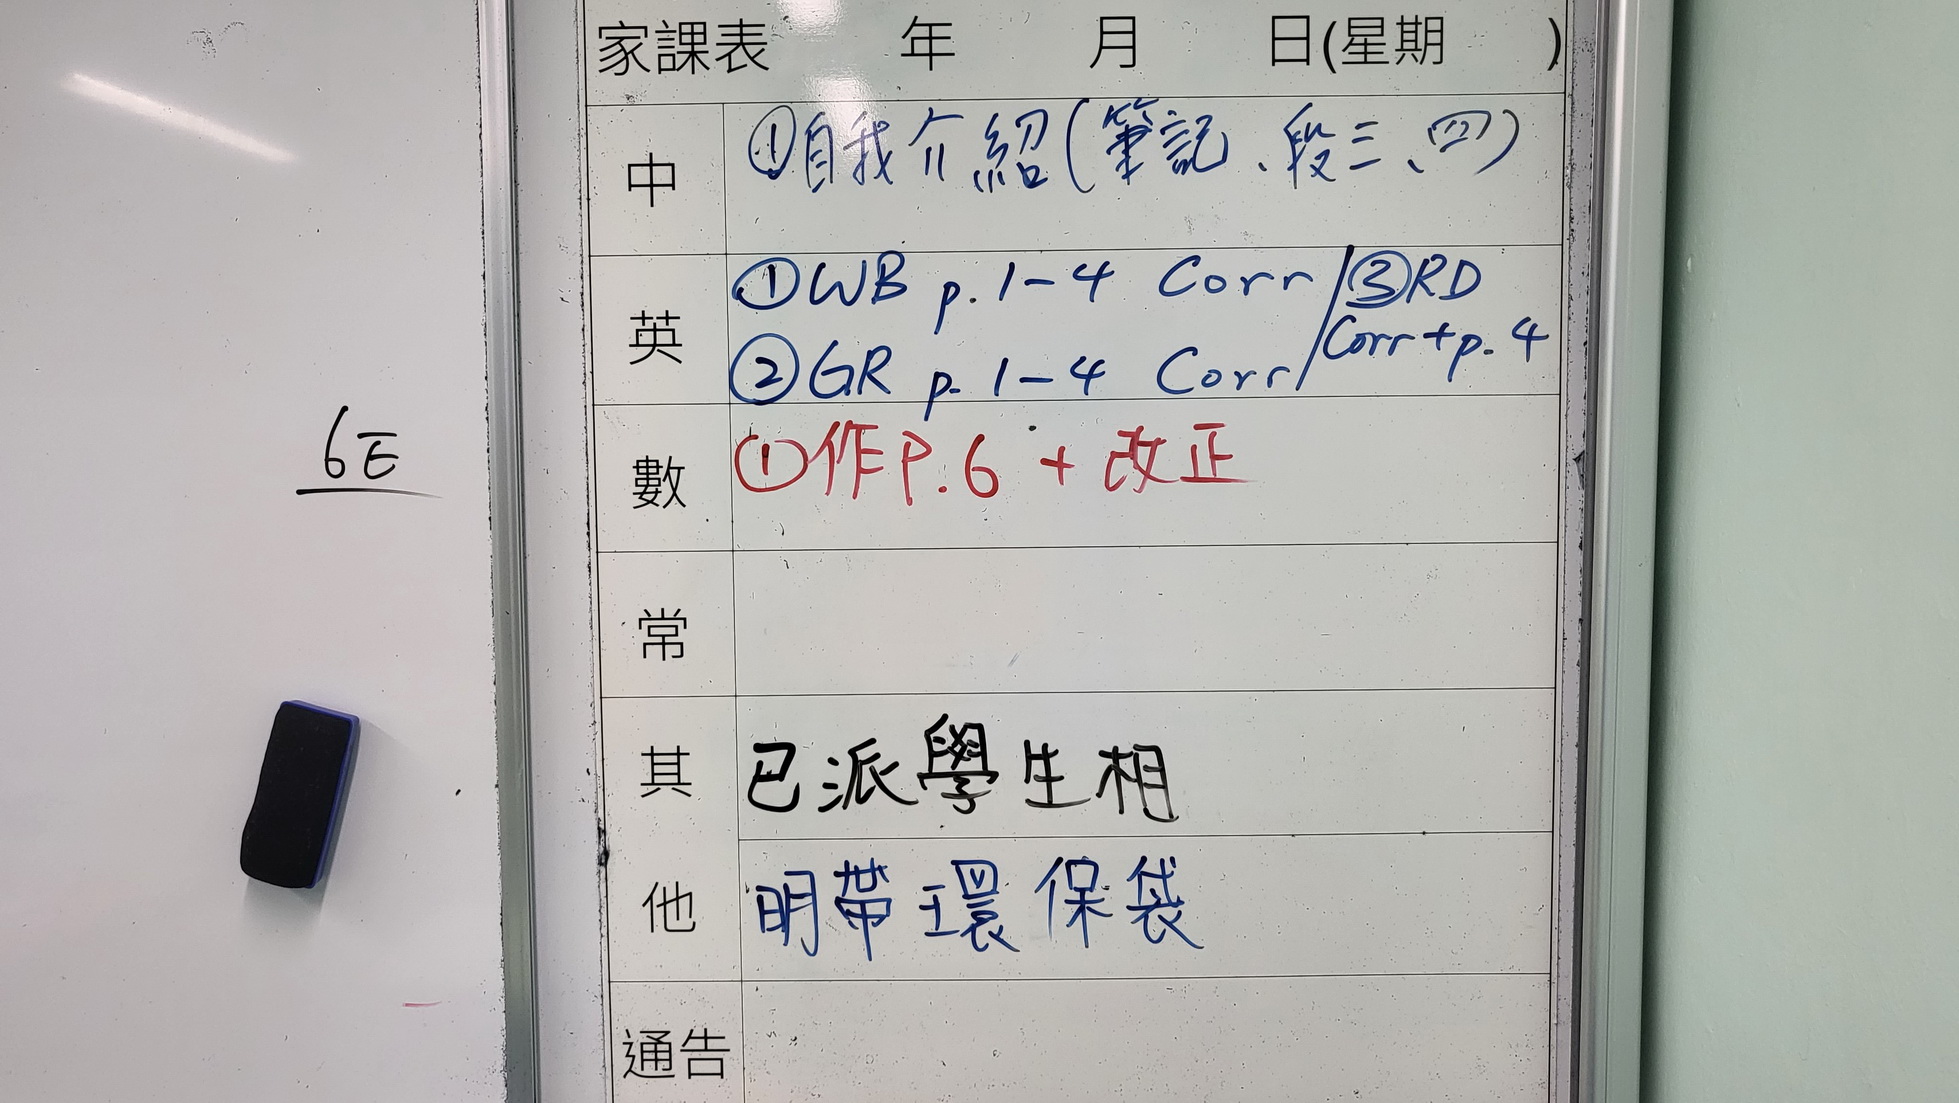 家課表 年 月 日(星期 )
中 ①自我介紹(筆記、段三、四)
英 ①WB p.1-4 Corr/③RD
②GR p.1-4 Corr/Corr+p.4
6E
數 ①作P.6 + 改正
常
其 已派學生相
他 明帶環保袋
通告